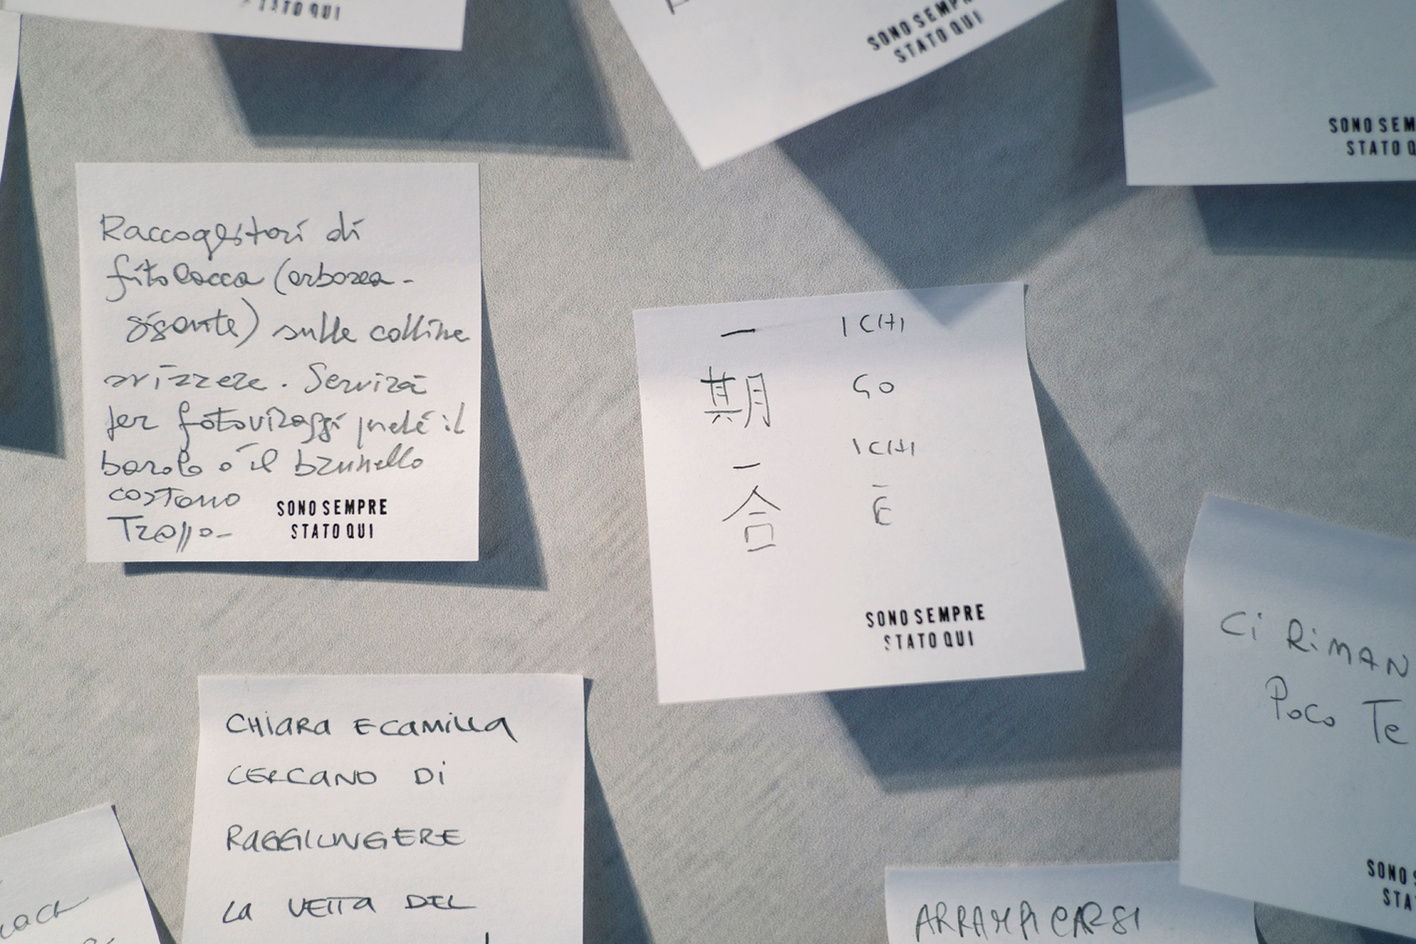 STATO QUI
SONO SEMPRE
STATO QUI
SONO SEM
STATO Q
Raccoglitori di
fitolacca (erborea-
gigante) sulle colline
svizzere. Servirà
per fotoviraggi perché il
barolo o il brunello
costano
Troppo-
SONO SEMPRE
STATO QUI
一 ICHI
期 GO
一 ICHI
合 Ē
SONO SEMPRE
STATO QUI
Ci RiMAN
Poco Te
SONO S
STA
CHIARA E CAMILLA
CERCANO Di
RAGGIUNGERE
LA VETTA DEL
ARRAMPICARSI